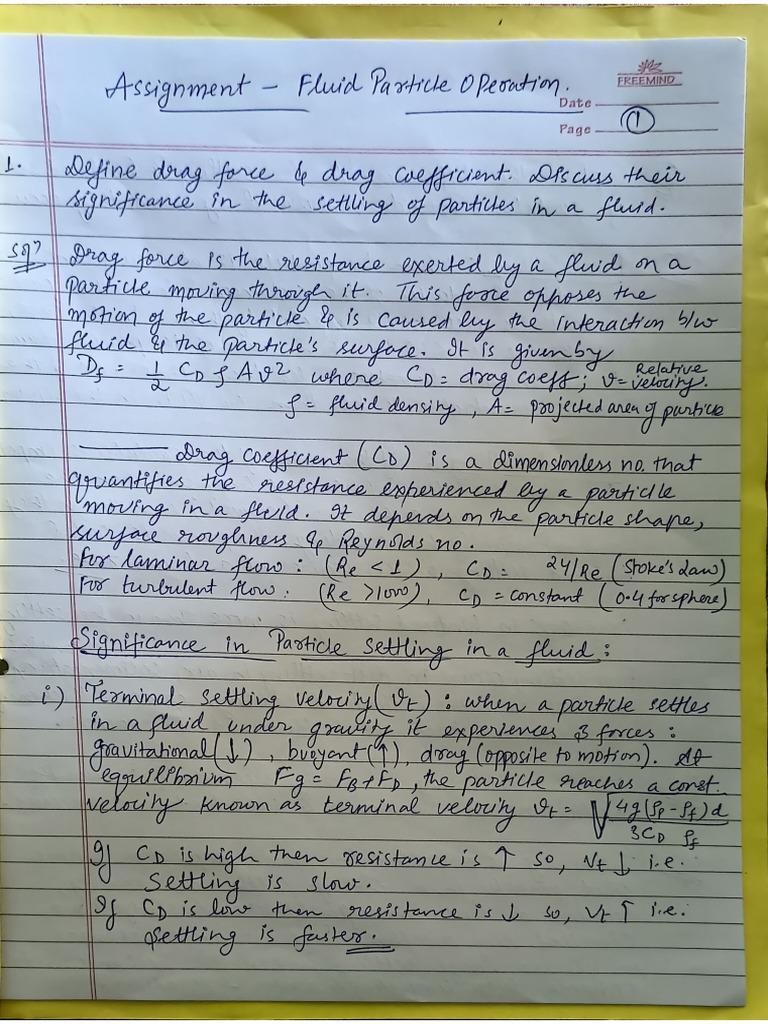 Assignment - Fluid Particle Operation.
FREEMIND
Date
Page 1
1. Define drag force & drag coefficient. Discuss their
significance in the settling of particles in a fluid.
Solⁿ Drag force is the resistance exerted by a fluid on a
particle moving through it. This force opposes the
motion of the particle & is caused by the interaction b/w
fluid & the particle's surface. It is given by
D_f = 1/2 C_D ρ A v² where C_D = drag coeff; v = Relative velocity.
ρ = fluid density, A = projected area of particle
Drag coefficient (C_D) is a dimensionless no. that
quantifies the resistance experienced by a particle
moving in a fluid. It depends on the particle shape,
surface roughness & Reynolds no.
For laminar flow : (Re < 1), C_D = 24/Re (Stoke's Law)
For turbulent flow : (Re > 1000), C_D = constant (0.4 for sphere)
Significance in Particle Settling in a fluid :
i) Terminal settling velocity (v_t) : when a particle settles
in a fluid under gravity it experiences 3 forces :
gravitational (↓), buoyant (↑), drag (opposite to motion). At
equilibrium Fg = F_B + F_D, the particle reaches a const.
velocity known as terminal velocity v_t = √(4g(ρ_p - ρ_f)d / 3C_D ρ_f)
If C_D is high then resistance is ↑ so, v_t ↓ i.e.
settling is slow.
If C_D is low then resistance is ↓ so, v_t ↑ i.e.
settling is faster.